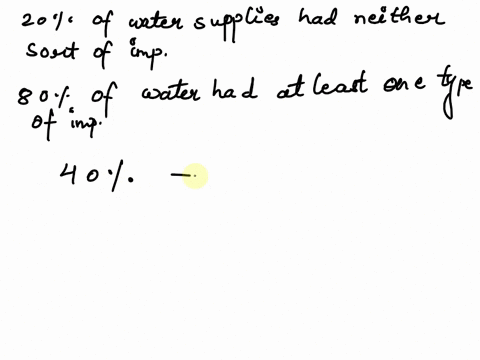 20% of water supplies had neither
sort of imp.
80% of water had at least one type
of imp.
40% -